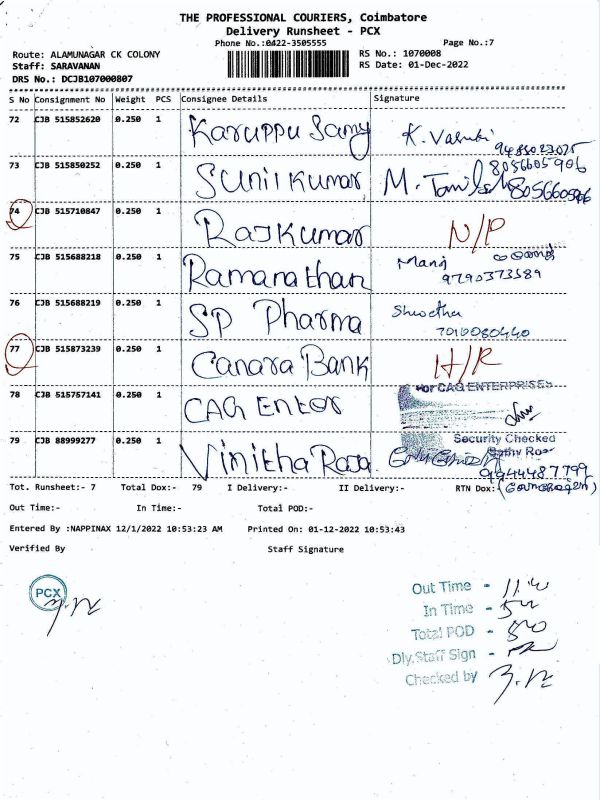 THE PROFESSIONAL COURIERS, Coimbatore
Delivery Runsheet - PCX
Phone No.:0422-3505555 Page No.:7
Route: ALAMUNAGAR CK COLONY RS No.: 1070008
Staff: SARAVANAN RS Date: 01-Dec-2022
DRS No.: DCJB107000807
S No Consignment No Weight PCS Consignee Details Signature
72 CJB 515852620 0.250 1 Karuppu Samy K. Vasuki
73 CJB 515850252 0.250 1 Sunil Kumar 8056605906
74 CJB 515710847 0.250 1 Rajkumar N/P
75 CJB 515688218 0.250 1 Ramanathan Manoj
9790373589
76 CJB 515688219 0.250 1 SP Pharma Shwetha
7010080440
77 CJB 515873239 0.250 1 Canara Bank H/R
78 CJB 515757141 0.250 1 CAG Enter For CAG ENTERPRISES
Security Checked
79 CJB 88999277 0.250 1 Vinitha Raja
9944487799
Tot. Runsheet:- 7 Total Dox:- 79 I Delivery:- II Delivery:- RTN Dox:-
Out Time:- In Time:- Total POD:-
Entered By :NAPPINAX 12/1/2022 10:53:23 AM Printed On: 01-12-2022 10:53:43
Verified By Staff Signature
PCX
Out Time -
In Time -
Total POD - 80
Dly.Staff Sign -
Checked by